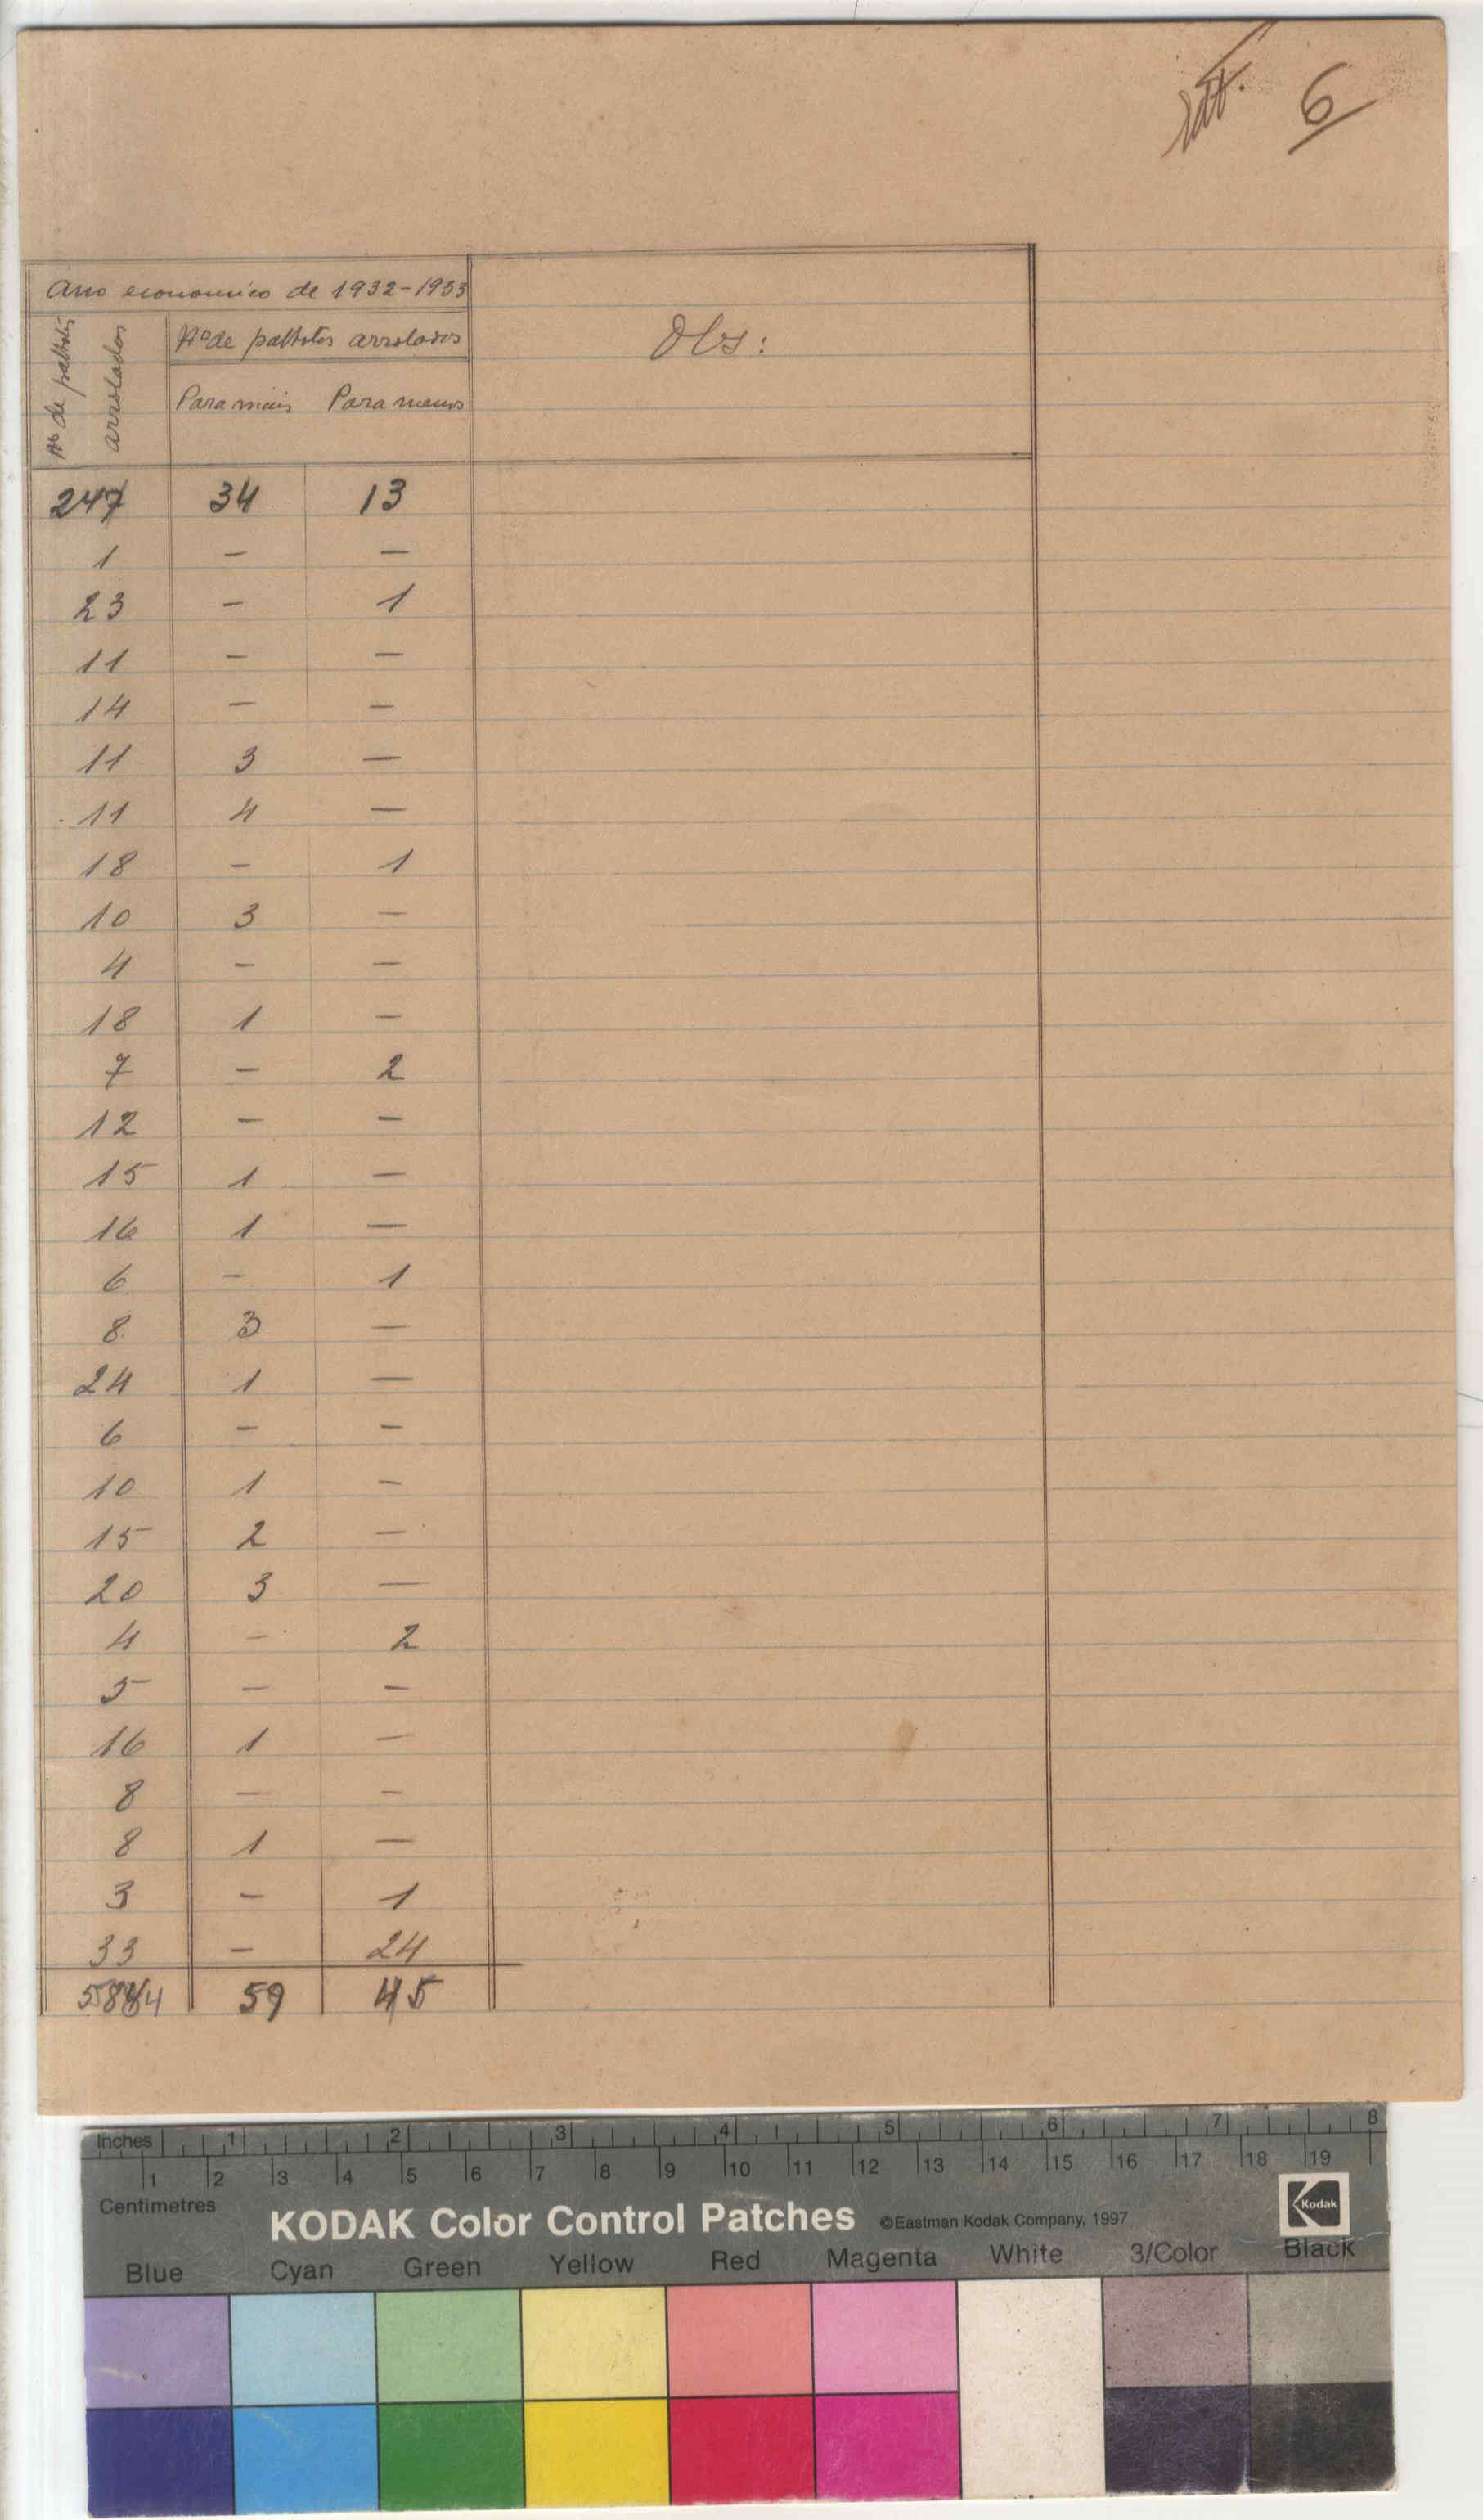 6
Ano economico de 1932-1933
Nº de palhotas arrolados
Nº de palhotas arrolados
Obs:
Para mais Para menos
247 34 13
1 — —
23 — 1
11 — —
14 — —
11 3 —
11 4 —
18 — 1
10 3 —
4 — —
18 1 —
7 — 2
12 — —
15 1 —
16 1 —
6 — 1
8 3 —
24 1 —
6 — —
10 1 —
15 2 —
20 3 —
4 — 2
5 — —
16 1 —
8 — —
8 1 —
3 — 1
33 — 24
584 59 45
Inches 1 2 3 4 5 6 7 8
1 2 3 4 5 6 7 8 9 10 11 12 13 14 15 16 17 18 19
Centimetres
KODAK Color Control Patches ©Eastman Kodak Company, 1997 Kodak
Blue Cyan Green Yellow Red Magenta White 3/Color Black